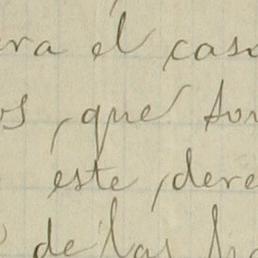 era el caso
os, que son
este, dere
de las ha